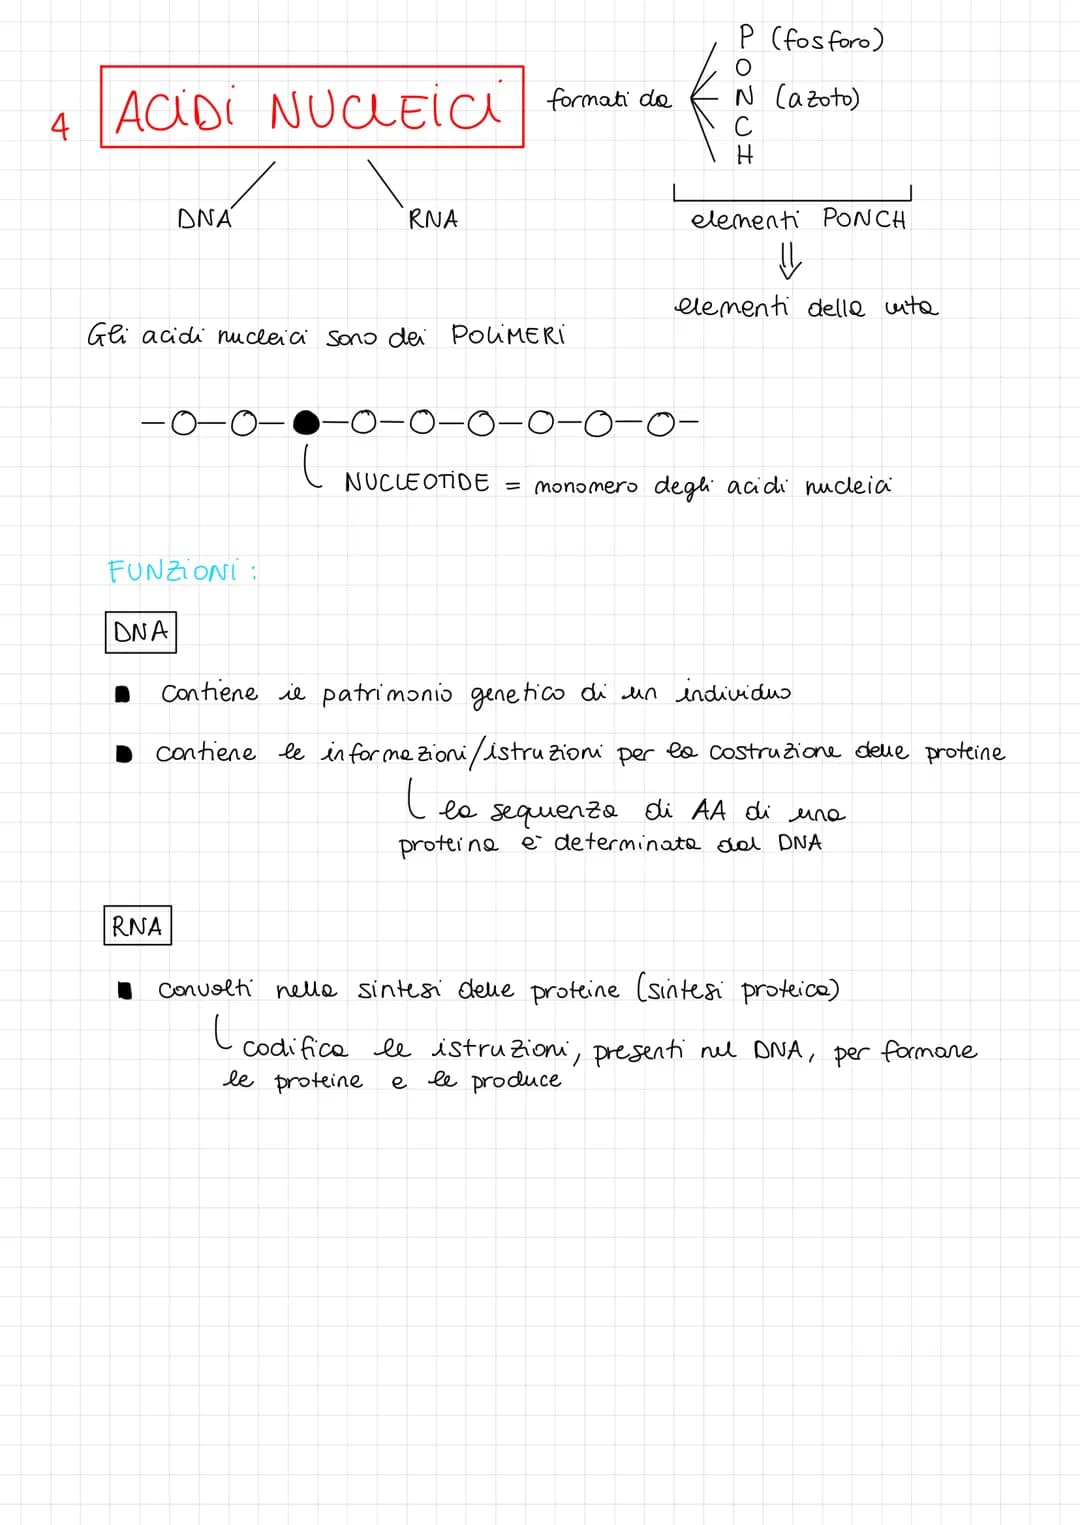 P (fosforo)
O
4 ACIDI NUCLEICI formati da N (azoto)
C
H
DNA RNA elementi PONCH
elementi della vita
Gli acidi nucleici sono dei POLIMERI
NUCLEOTIDE = monomero degli acidi nucleici
FUNZIONI:
DNA
Contiene il patrimonio genetico di un individuo
contiene le informazioni/istruzioni per la costruzione delle proteine
la sequenza di AA di una
proteina è determinata dal DNA
RNA
Convolti nella sintesi delle proteine (sintesi proteica)
codifica le istruzioni, presenti nel DNA, per formare
le proteine e le produce